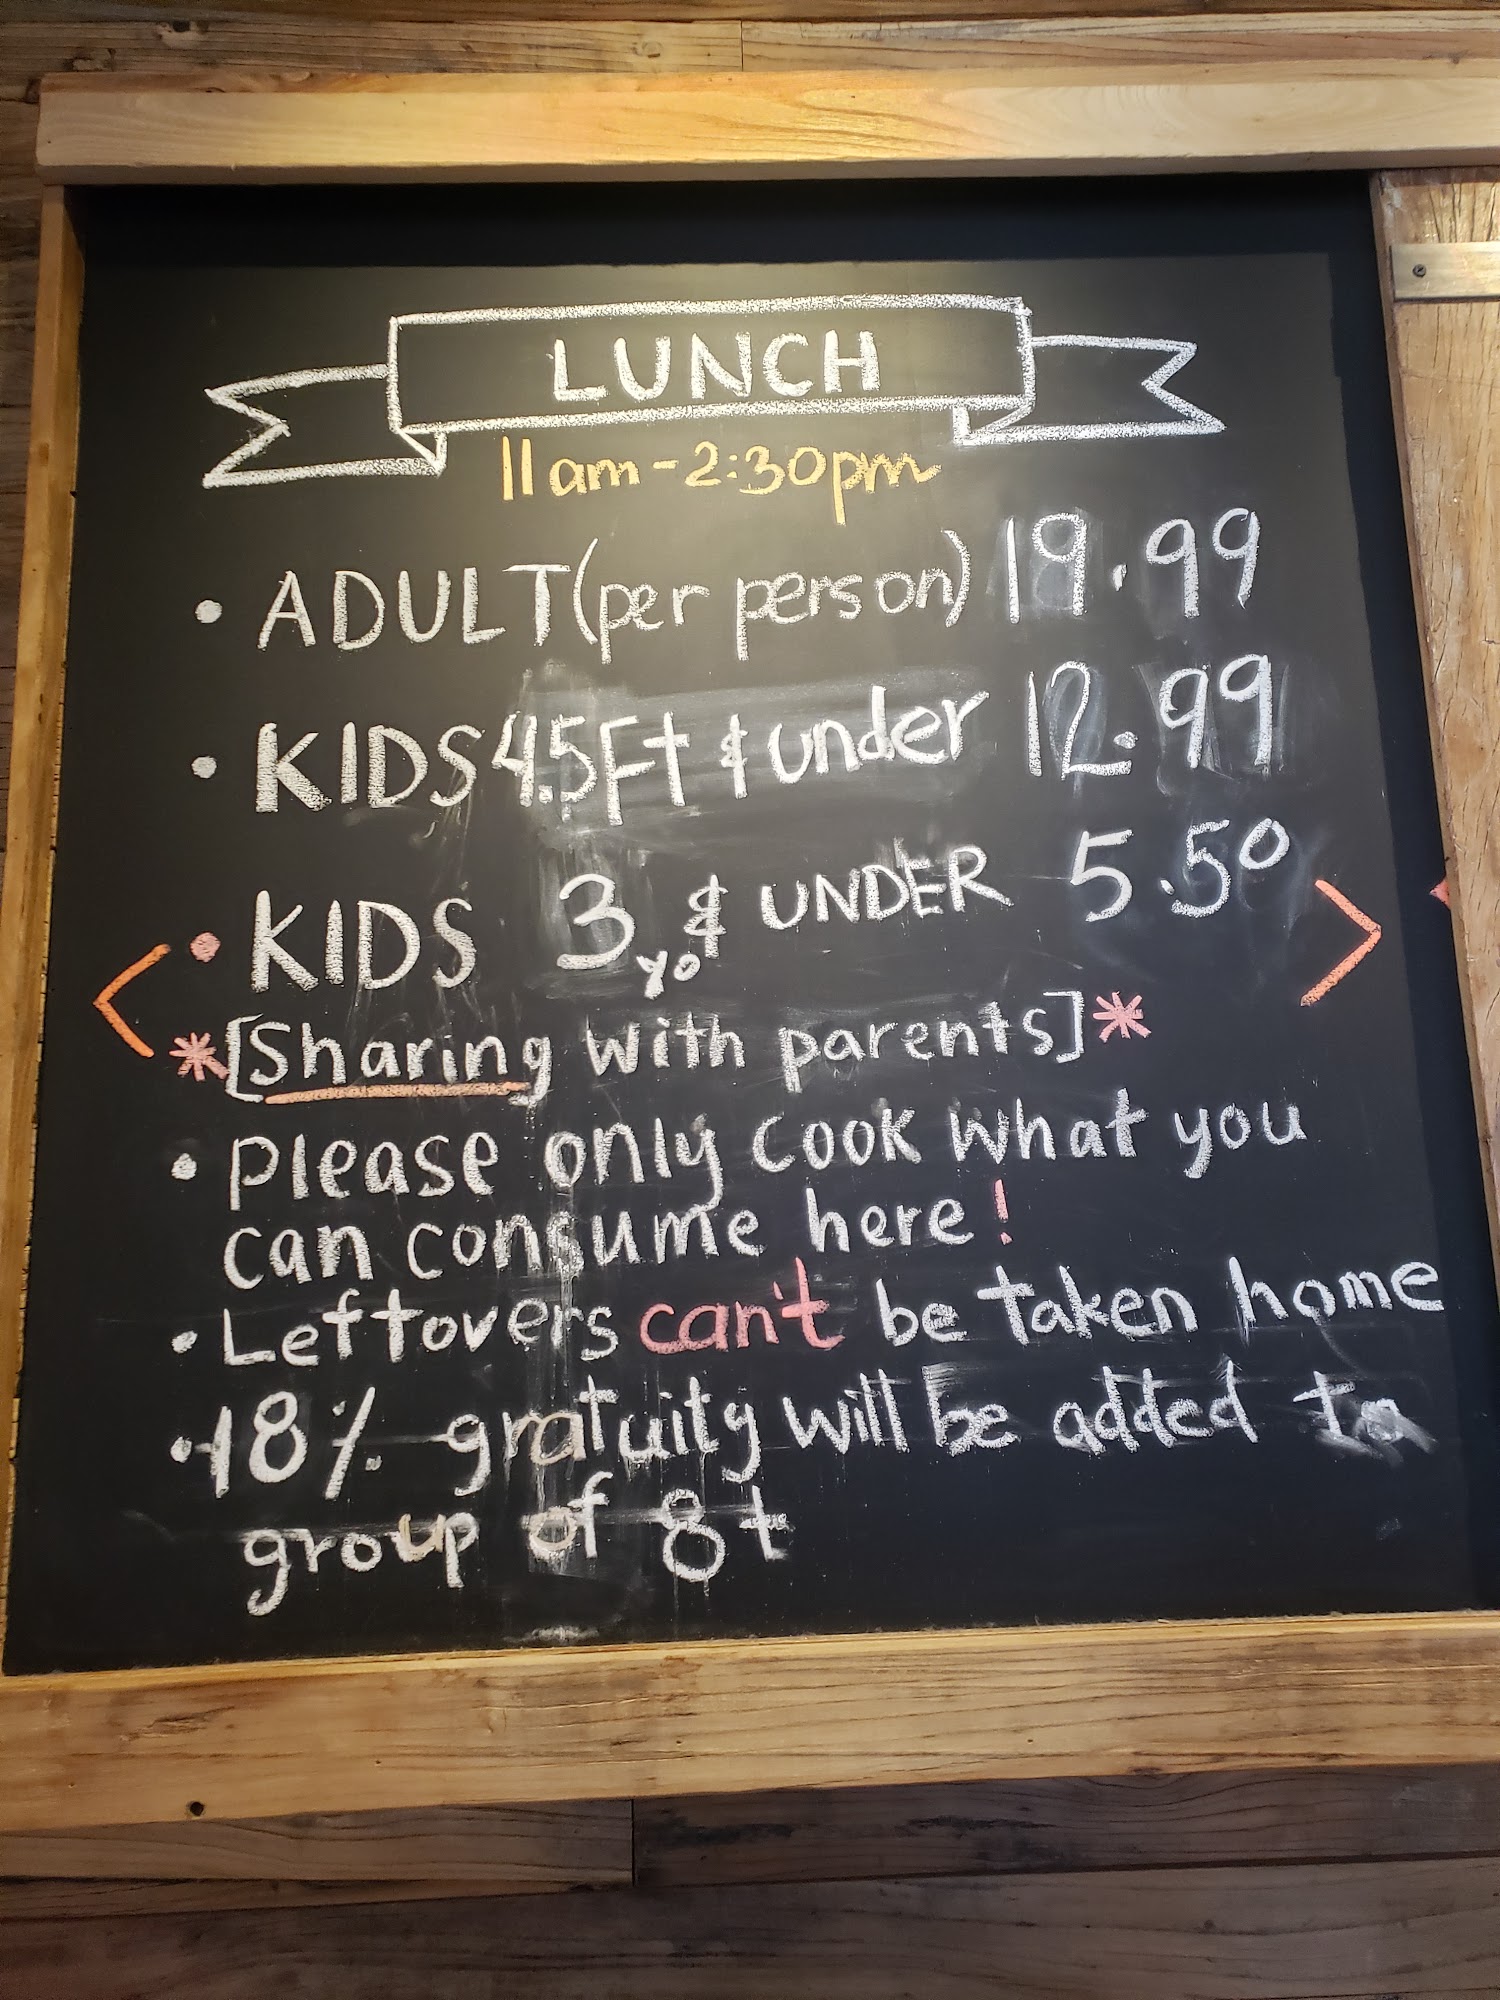 LUNCH
11am-2:30pm
• ADULT (per person) 19.99
• KIDS 4.5Ft & under 12.99
• KIDS 3yo & UNDER 5.50
*[Sharing with parents]*
• please only cook what you
can consume here!
• Leftovers can't be taken home
• 18% gratuity will be added to
group of 8+